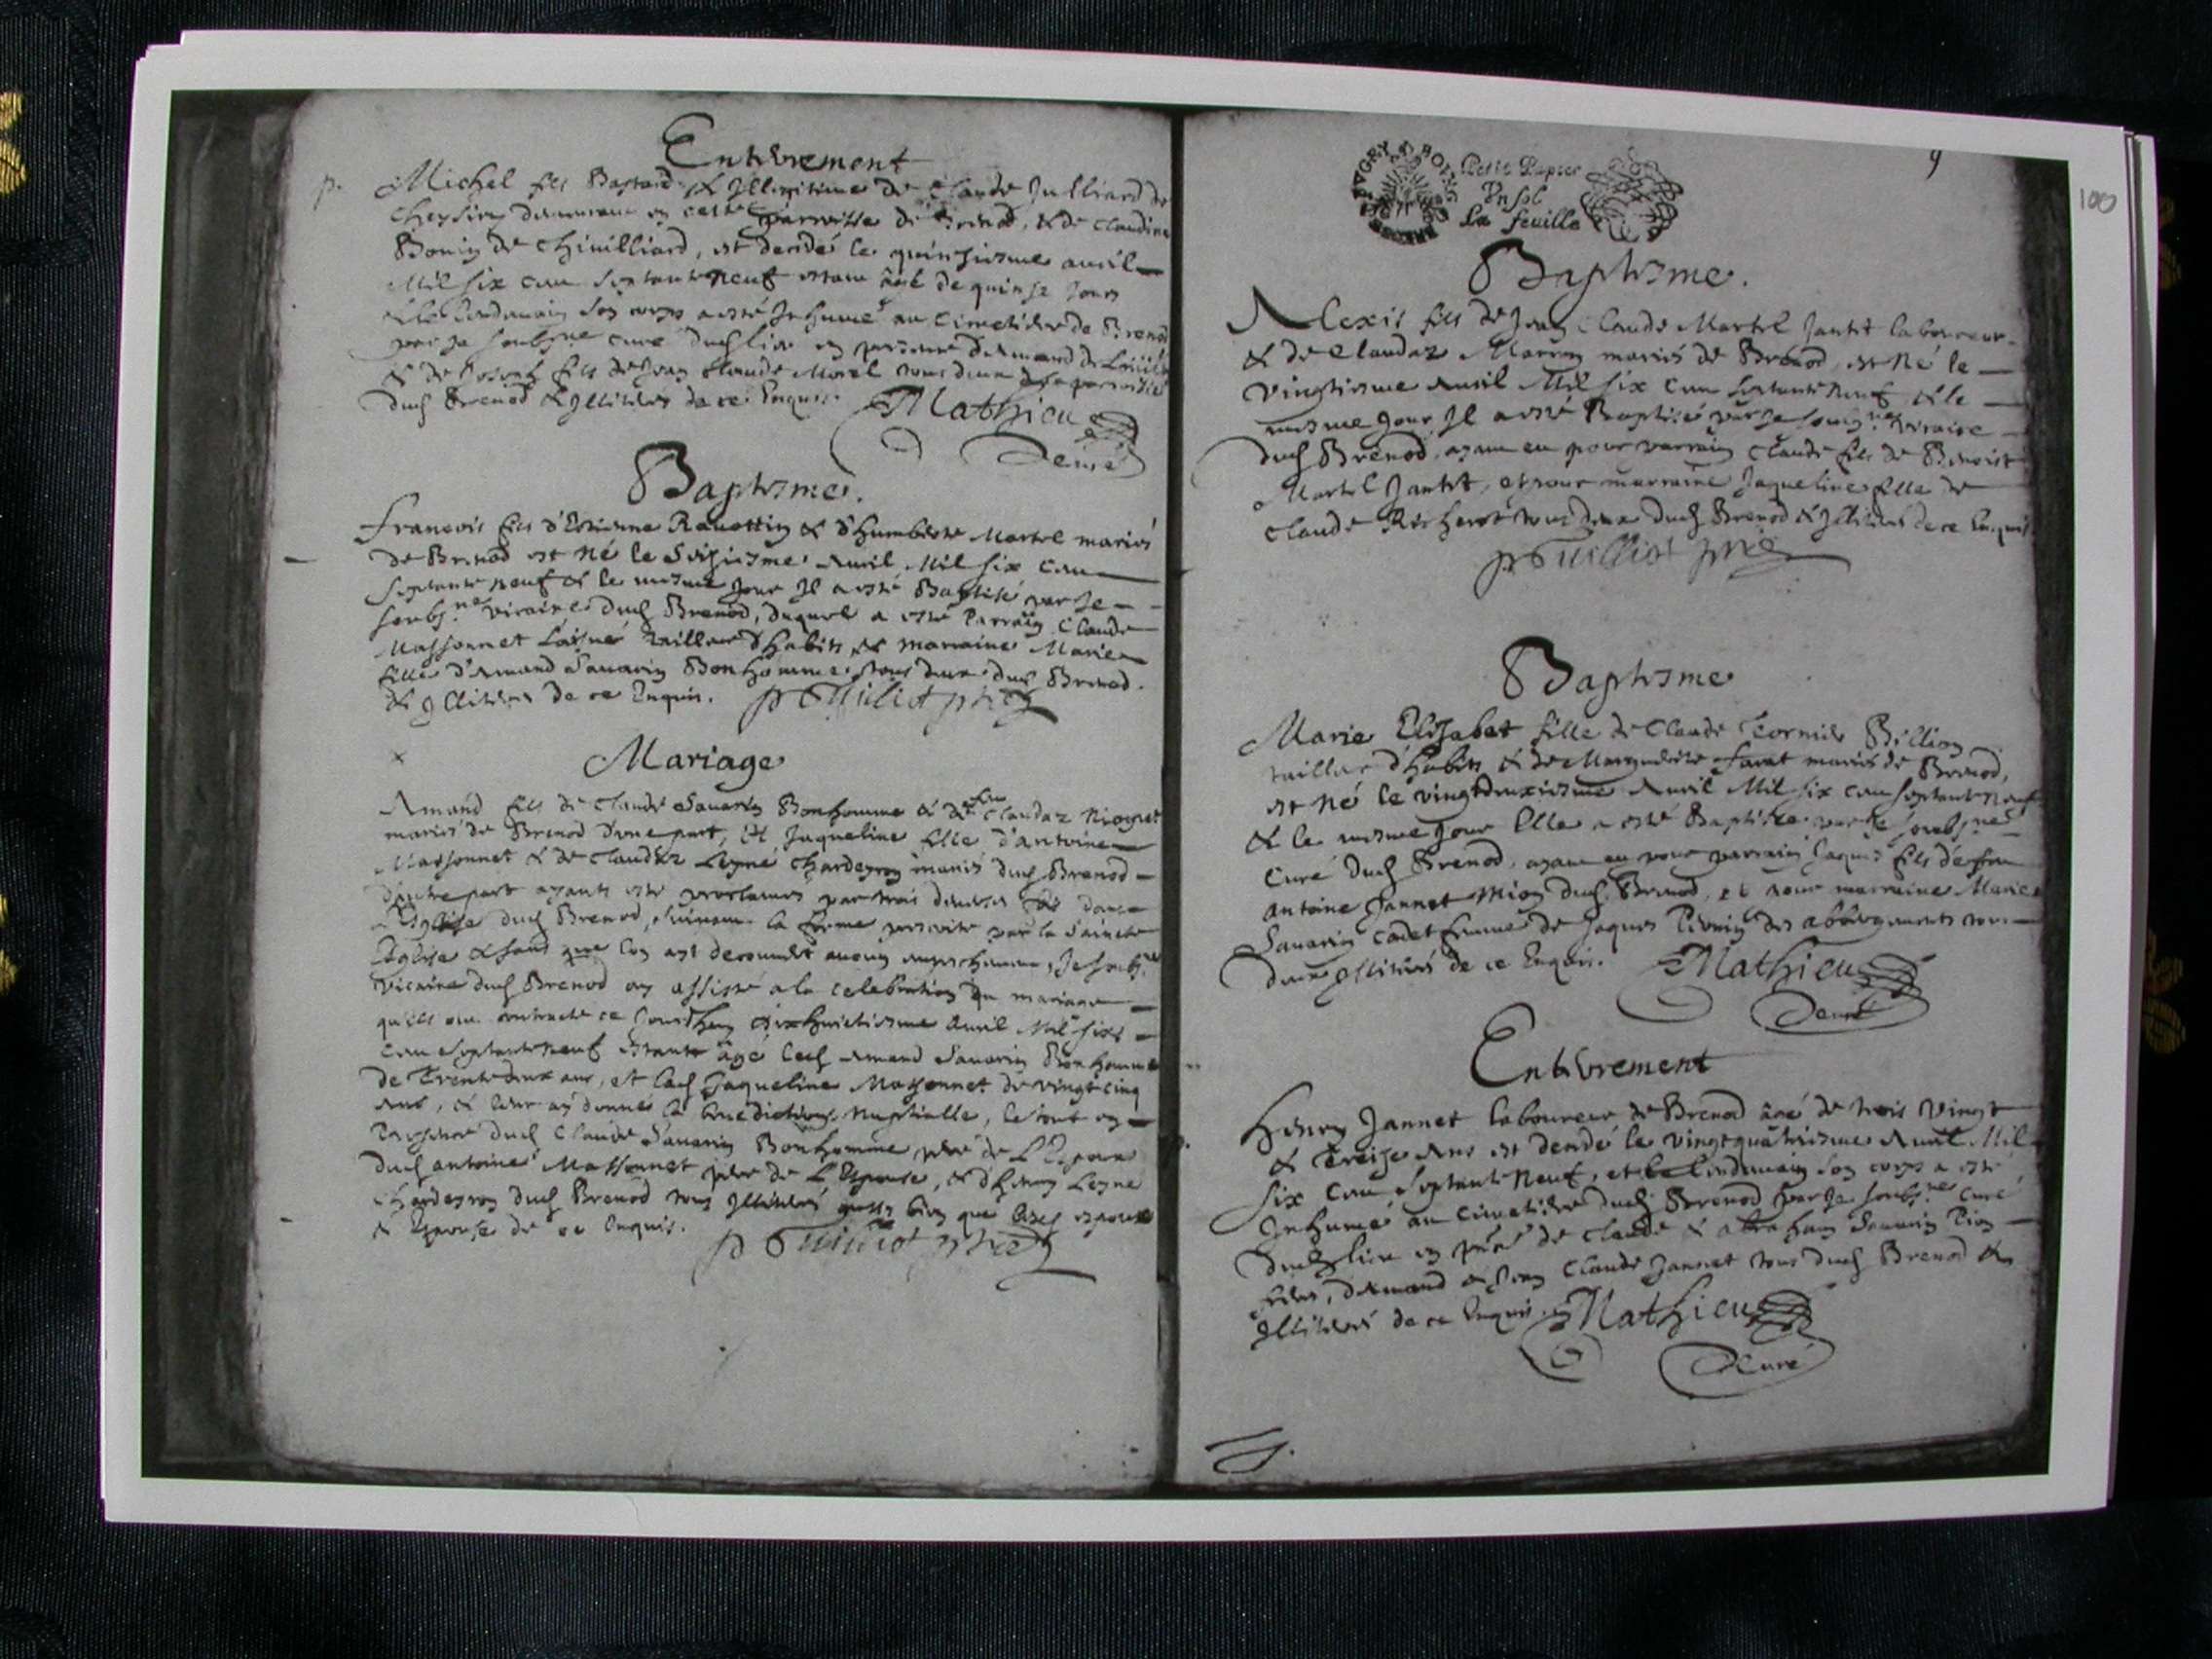 Enterrement
p. Michel fils Bastard & Illegitime de Claude Julliard de
en cette parroisse de Brenod, & de Claudine
de Chivilliard, est decedé le quinsiesme avril
Mil six cen septante neuf estant âgé de quinse jours
& le lendemain son corps a esté Inhumé au Cimetiere de Brenod
par je soubsne curé dud lieu en presence d'Amand de
& de fils de Jean Claude Morel tous deux de la parroisse
dud Brenod & Illiteres de ce Enquis. Mathieu
Curé
Baptesme.
francois fils d'Estienne Ravottin & d'humberte Martel mariés
de Brenod est né le Seisiesme Avril Mil six cen
septante neuf & le mesme jour Il a esté Baptisé par je
soubsne. vicaire dud Brenod, duquel a esté Parrain Claude
Massonnet L'aisné Tailleur d'habits, & marraine Marie
fille d'Amand Savarin Bonhomme, tous deux dud Brenod.
& Illiteres de ce Enquis. p Guilliot pre
Mariage
Amand fils de Claude Savarin Bonhomme & de feu Claudaz
mariés de Brenod d'une part, Et Jaqueline fille d'antoine
Massonnet & de Claudaz Leyné Chardeyron mariés dud Brenod
d'autre part ayants esté proclamés par trois diverses fois dans
L'Eglise dud Brenod, suivant la forme prescrite par la Saincte
Eglise & sans que l'on ayt decouvert aucun empechement, je soubsne
Vicaire dud Brenod ay assisté a la celebration du mariage
qu'ils ont contracté ce jourd'huy dixhuictiesme Avril Mil six
cen septante neuf estants âgé led Amand Savarin Bonhomme
de Trente deux ans, et lad Jaqueline Massonnet de vingt cinq
ans, & leur ay donné la benediction Nuptialle, le tout en
presence dud Claude Savarin Bonhomme pere de L'Espoux
dud antoine Massonnet pere de L'Espouse, & d'henry Leyné
Chardeyron dud Brenod tous Illiteres aussy bien que lesd espoux
& Espouse de ce Enquis. p Guilliot pre
9
100
BUGEY
Petit Papier
Un sol
La feuille
Baptesme.
Alexis fils de Jean Claude Martel Jantet laboureur
& de Claudaz mariés de Brenod, est Né le
Vingtiesme Avril Mil six cen septante neuf & le
mesme jour Il a esté Baptisé par je soubsne. Vicaire
dud Brenod, ayant eu pour parrain Claude fils de Benoist
Martel Jantet, et pour marraine Jaqueline fille de
Claude tous deux dud Brenod & Illiteres de ce Enquis
p Guilliot pre
Baptesme
Marie Elisabet fille de Claude Billion
tailleur d'habits & de Marguerite mariés de Brenod,
est né le vingtdeuxiesme Avril Mil six cen septante neuf
& le mesme jour Elle a esté Baptisée par je soubsne
Curé dud Brenod, ayant eu pour parrain Jaques fils de feu
Antoine Jannet Mion dud Brenod, et pour marraine Marie
Savarin Cadet femme de Jaques des abbergements tous
deux Illiteres de ce Enquis. Mathieu
Curé
Enterrement
Henry Jannet laboureur de Brenod âgé de trois Vingt
& Treise Ans est decedé le vingtquatriesme Avril Mil
six cen Septante Neuf, et le lendemain son corps a esté
Inhumé au Cimetiere dud Brenod par je soubsne Curé
dud lieu en pnce de Claude & abraham Savarin
freres, d'Amand & Jean Claude Jannet tous dud Brenod &
Illiteres de ce Enquis. Mathieu
Curé